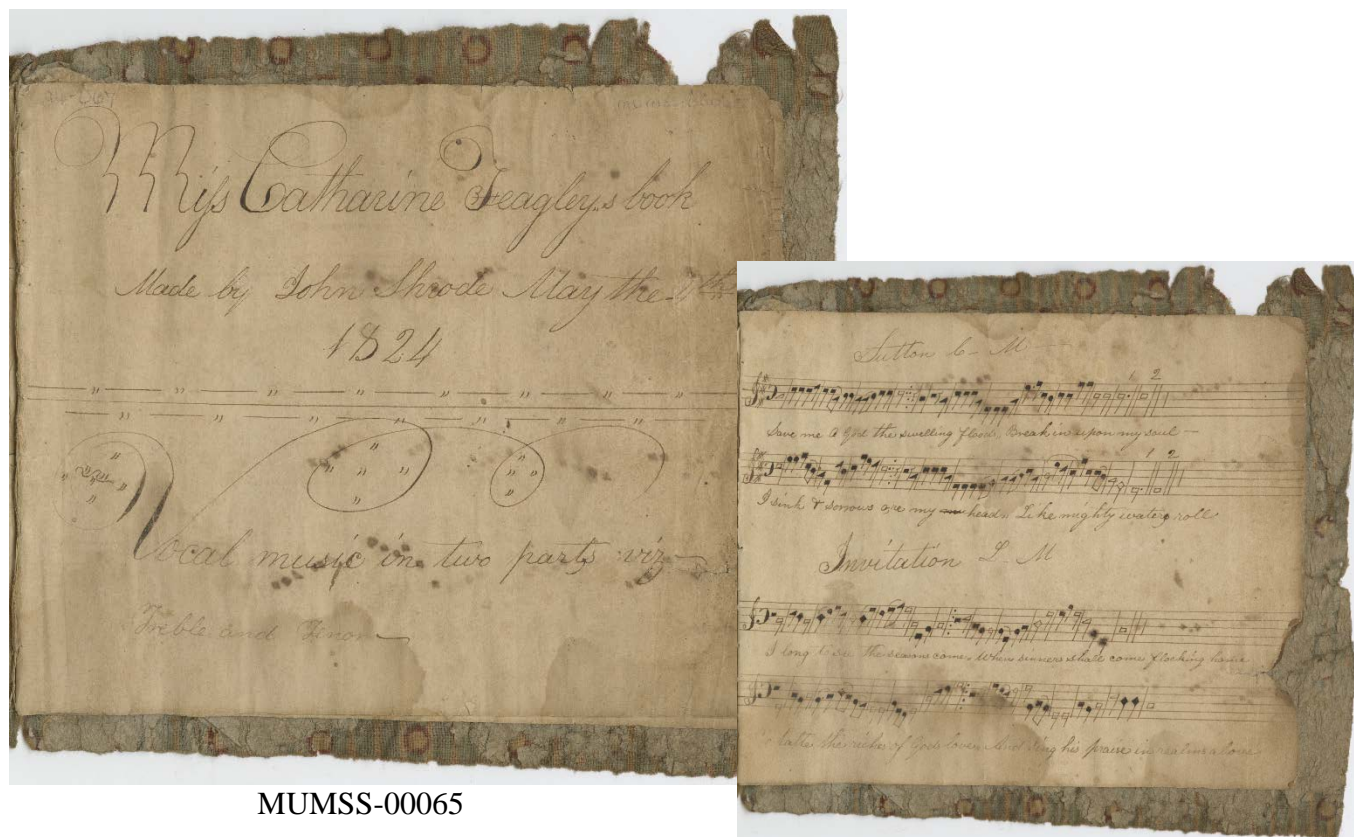 Miss Catharine Feagley,s book
Made by John Shrode May the
1824
Vocal music in two parts viz
Treble and Tenor
MUMSS-00065
Sutton C - M
1 2
Save me O God the swelling floods Break in upon my soul
1 2
I sink & sorrows are my head Like mighty waters roll
Invitation L - M
I long to see the season come, When sinners shall come flocking home
the riches of Gods love And sing his praise in realms above